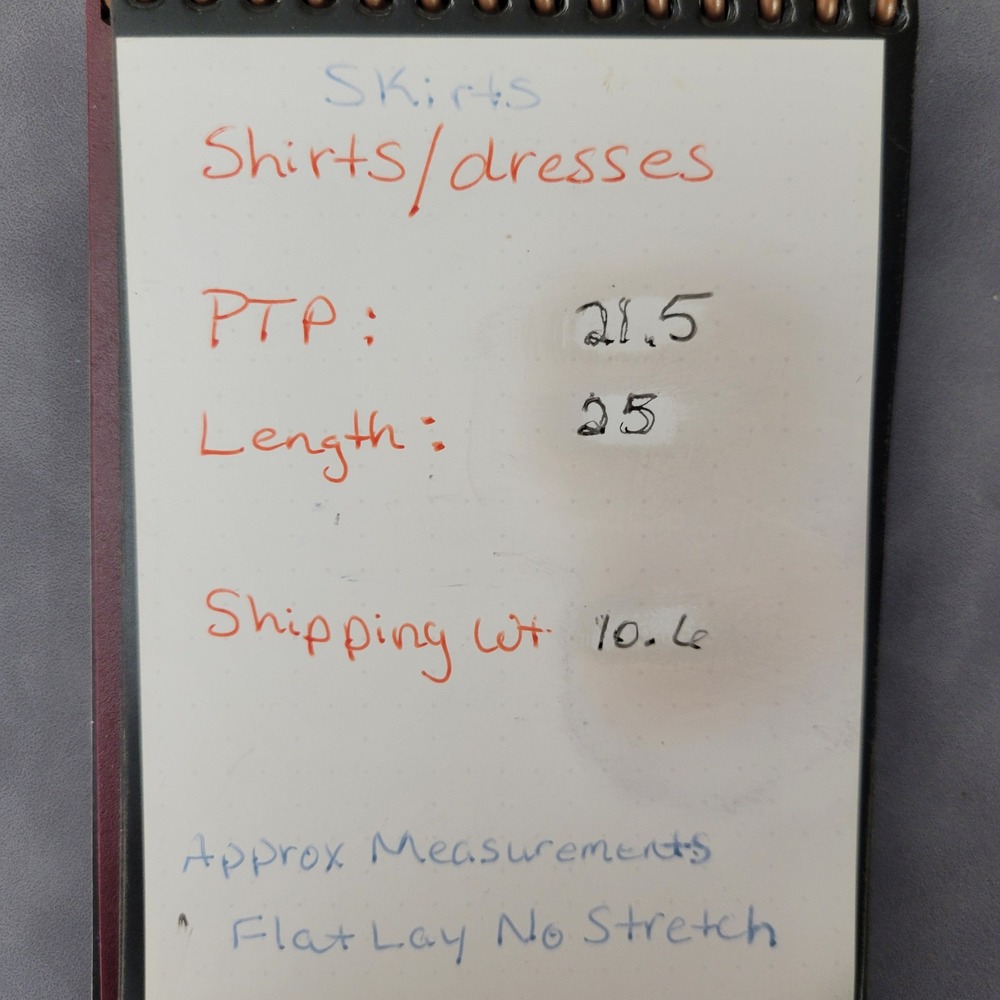 Skirts
Shirts/dresses
PTP: 21.5
Length: 25
Shipping Wt 10.6
Approx Measurements
Flat Lay No Stretch